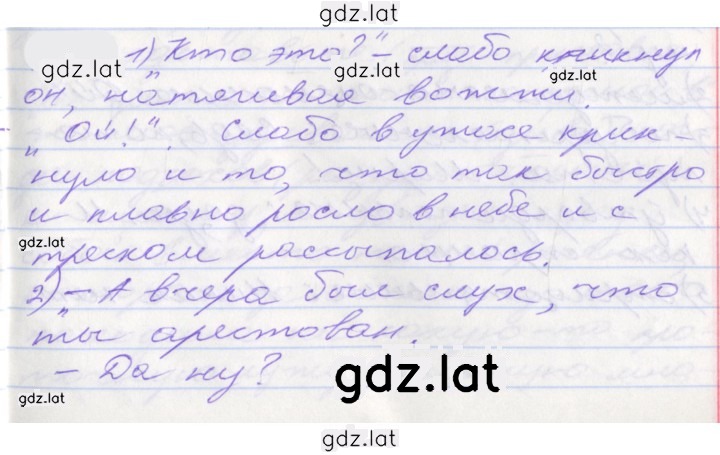 gdz.lat
1) Кто это?" – слабо крикнул
gdz.lat
gdz.lat
он, натягивая вожжи.
"Ой!". Слабо в ужасе крик-
нуло и то, что так быстро
и плавно росло в небе и с
gdz.lat
треском рассыпалось.
2) – А вчера был слух, что
ты арестован.
– Да ну?
gdz.lat
gdz.lat